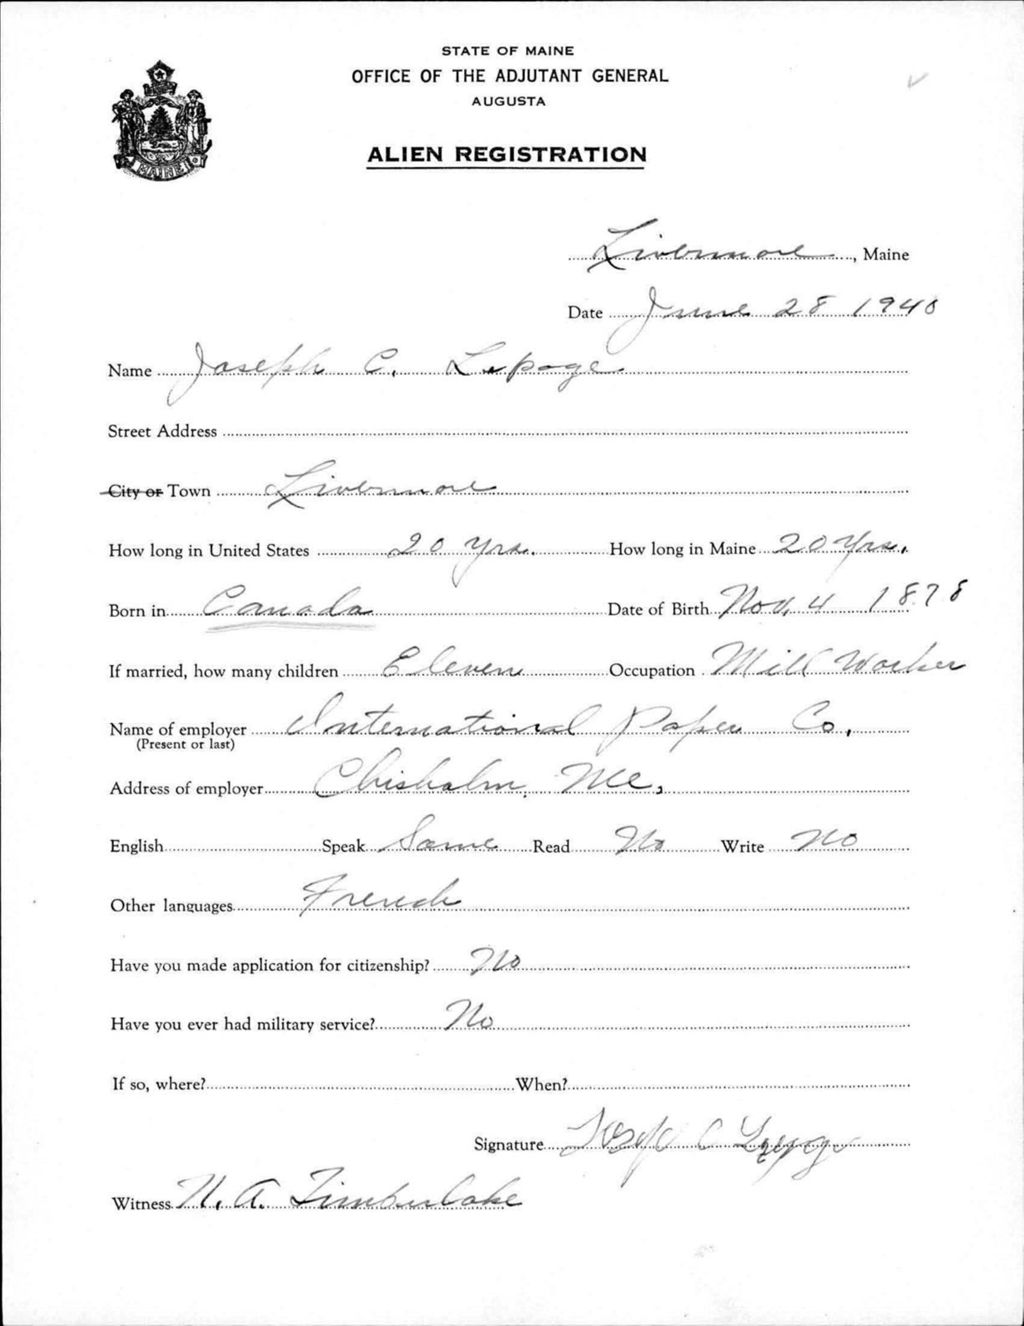 STATE OF MAINE
OFFICE OF THE ADJUTANT GENERAL
AUGUSTA
ALIEN REGISTRATION
MAINE
Livermore, Maine
Date June 28 1940
Name Joseph C. Lepage
Street Address
City or Town Livermore
How long in United States 20 Yrs. How long in Maine 20 Yrs.
Born in Canada Date of Birth Nov. 4 1878
If married, how many children Eleven Occupation Mill Worker
Name of employer International Paper Co.
(Present or last)
Address of employer Chisholm, Me.
English Speak Some Read No Write No
Other languages French
Have you made application for citizenship? No
Have you ever had military service? No
If so, where? When?
Signature C
Witness H. A. Timberlake